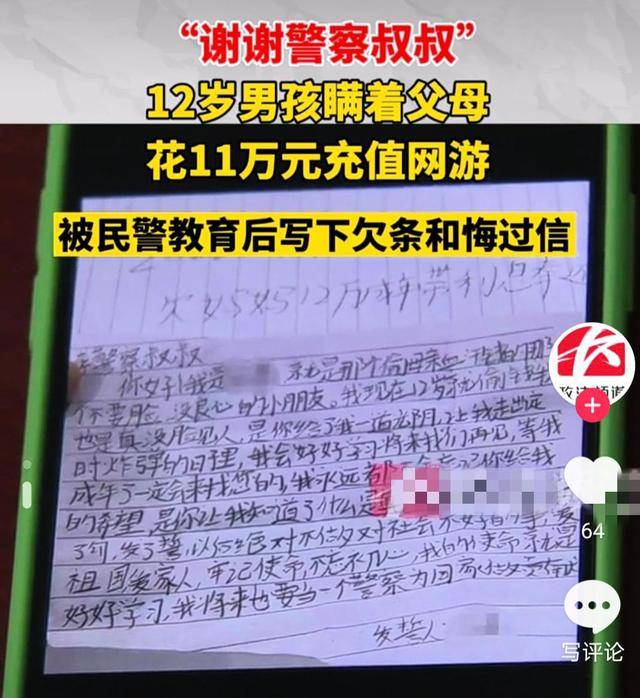 “谢谢警察叔叔”
12岁男孩瞒着父母
花11万元充值网游
被民警教育后写下欠条和悔过信
欠妈妈12万 带利息
警察叔叔
你好!我是 就是那个偷母亲血汗钱的那
个不要脸,没良心的小朋友。我现在12岁就偷
也是真没脸见人,是你给了我一道光阴,让我走出定
时炸弹的日理,我会好好学习将来我们再见,等我
成年了一定会来找您的,我永远都 你给我
的希望是你让我知道了什么是
了句,发了誓,以后绝对不做对社会不好的事,爱
祖国爱家人,牢记使命,不忘初心,我的使命就是
好好学习,我将来也要当一个警察为国家做贡献
发誓人:
政法频道
64
写评论